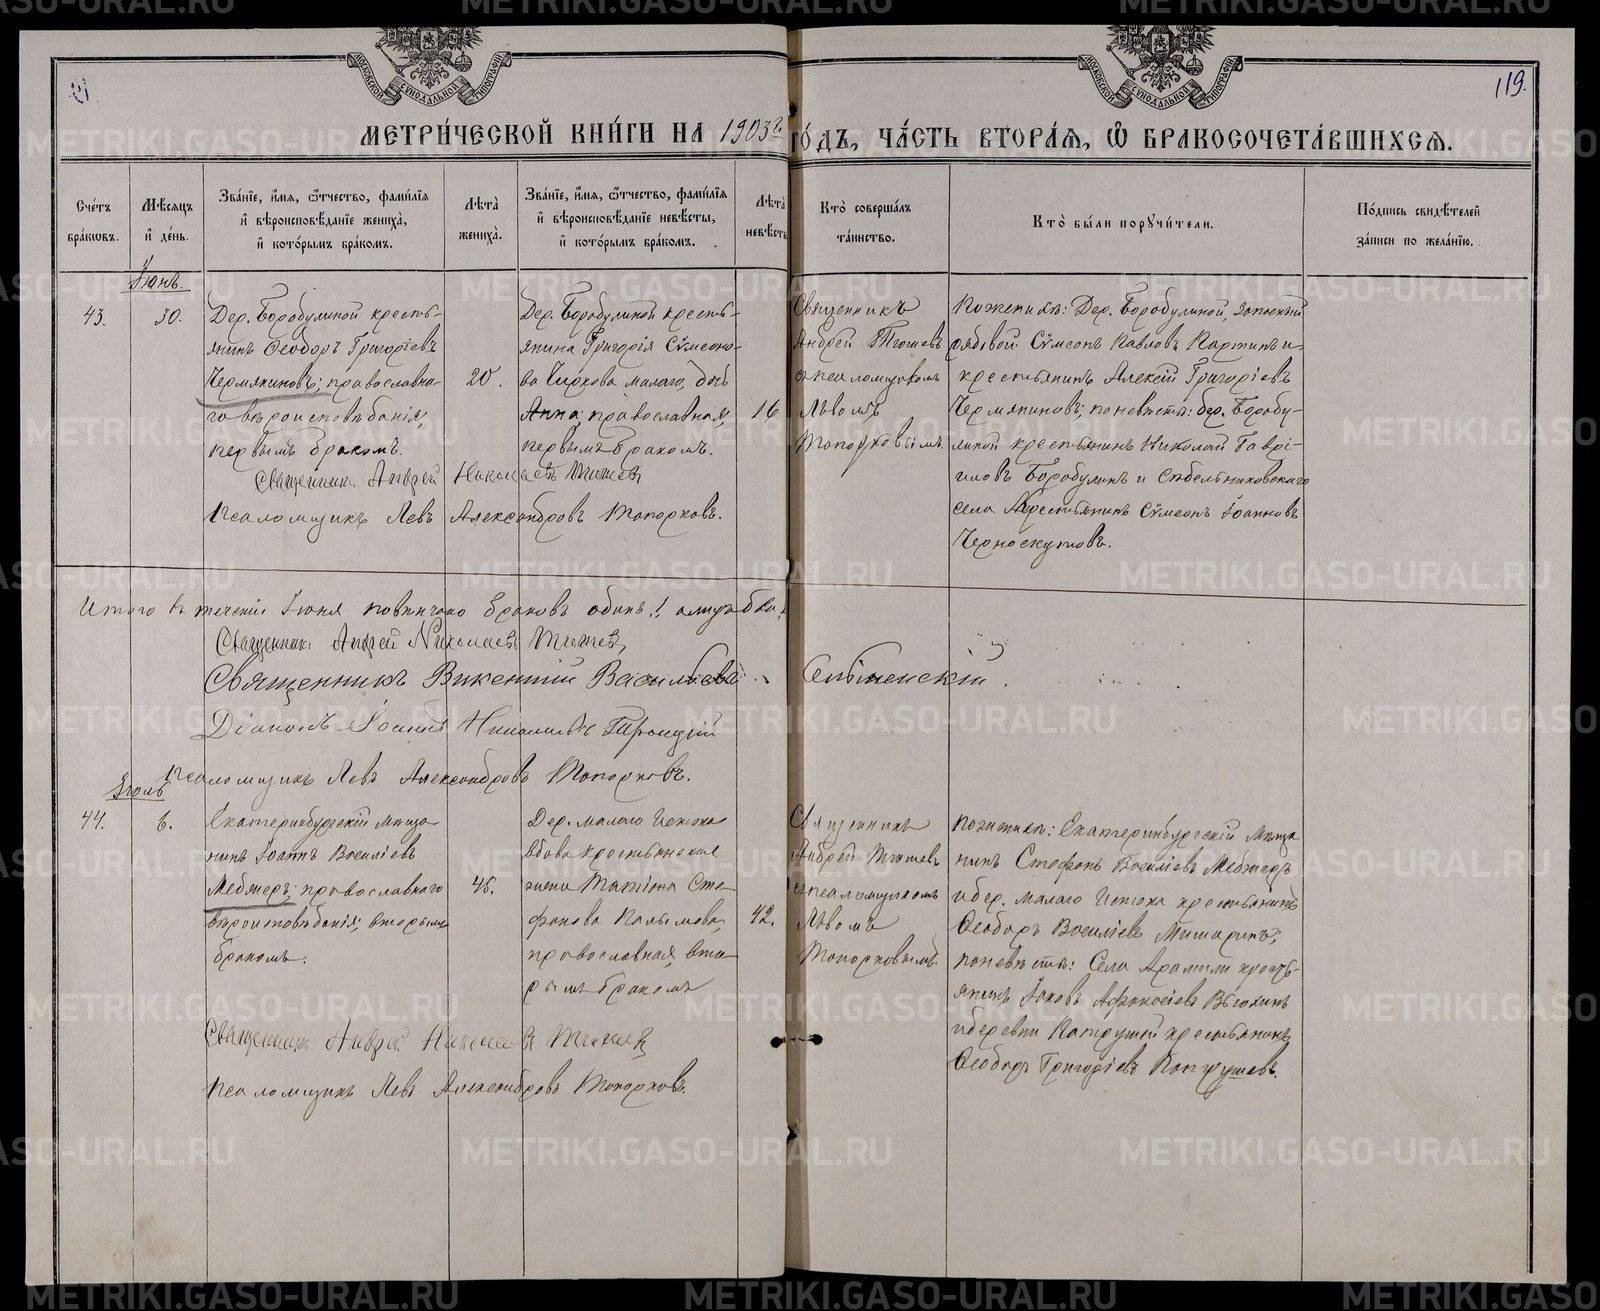 119.
МОСКОВСКОЙ СУНОДАЛЬНОЙ ТИПОГРАФИИ
МОСКОВСКОЙ СУНОДАЛЬНОЙ ТИПОГРАФИИ
МЕТРИ́ЧЕСКОЙ КНИ́ГИ НА 1903 г. ГО́ДЪ, ЧА́СТЬ ВТОРА́Я, Ѡ҆ БРАКОСОЧЕТА́ВШИХСЯ.
Сче́тъ бра́кѡвъ.
Мѣ́сяцъ и҆ де́нь.
Зва́нїе, и҆́мя, ѻ҆́тчество, фами́лїя и҆ вѣроисповѣ́данїе жениха̀, и҆ кото́рымъ бра́комъ.
Лѣ́та̀ жениха̀.
Зва́нїе, и҆́мя, ѻ҆́тчество, фами́лїя и҆ вѣроисповѣ́данїе невѣ́сты, и҆ кото́рымъ бра́комъ.
Лѣ́та̀ невѣ́сты
Кто̀ соверша́лъ та́инство.
Кто̀ бы́ли поручи́тели.
По́дпись свидѣ́телей за́писи по жела́нїю.
Іюнь.
43.
30.
Дер. Бородулиной кресть-
янинъ Ѳеодоръ Григоріевъ
Чермяниновъ; православна-
го вѣроисповѣданія,
первымъ бракомъ.
20.
Дер. Бородулиной кресть-
янина Григорія Сѵмеоно-
ва Чиркова малаго, дочь
Анна, православная,
первымъ бракомъ.
16.
Священникъ
Андрей
съ псаломщикомъ
Львомъ
Топорковымъ.
По женихѣ: Дер. Бородулиной, запасный
рядовой Сѵмеонъ Павловъ и
крестьянинъ Алексій Григоріевъ
Чермяниновъ; по невѣстѣ: дер. Бороду-
линой крестьянинъ Николай Гаврі-
иловъ Бородулинъ и
села крестьянинъ Сѵмеонъ Іоанновъ
Черноскутовъ.
Священникъ Андрей Николаевъ
Псаломщикъ Левъ Александровъ Топорковъ.
Итого въ теченіи Іюня повѣнчано браковъ одинъ.
Священникъ Андрей Николаевъ
Священникъ Викентій Васильевъ
Діаконъ Іоаннъ Николаевъ Троицкій
Псаломщикъ Левъ Александровъ Топорковъ.
Іюль
44.
6.
Екатеринбургскій мѣща-
нинъ Іоаннъ Василіевъ
Меджеръ; православнаго
вѣроисповѣданія; вторымъ
бракомъ.
45.
Дер. малаго Истока
вдова крестьянская
жена Татіана Сте-
фанова
православная, вто-
рымъ бракомъ
42.
Священникъ
Андрей
съ псаломщикомъ
Львомъ
Топорковымъ.
По женихѣ: Екатеринбургскій мѣща-
нинъ Стефанъ Василіевъ Меджеръ
и дер. малаго Истока крестьянинъ
Ѳеодоръ Василіевъ Мишаринъ;
по невѣстѣ: Села Арамили кресть-
янинъ Іаковъ Афанасіевъ
и деревни Патрушей крестьянинъ
Ѳеодоръ Григоріевъ Патрушевъ.
Священникъ Андрей
Псаломщикъ Левъ Александровъ Топорковъ.
METRIKI.GASO-URAL.RU